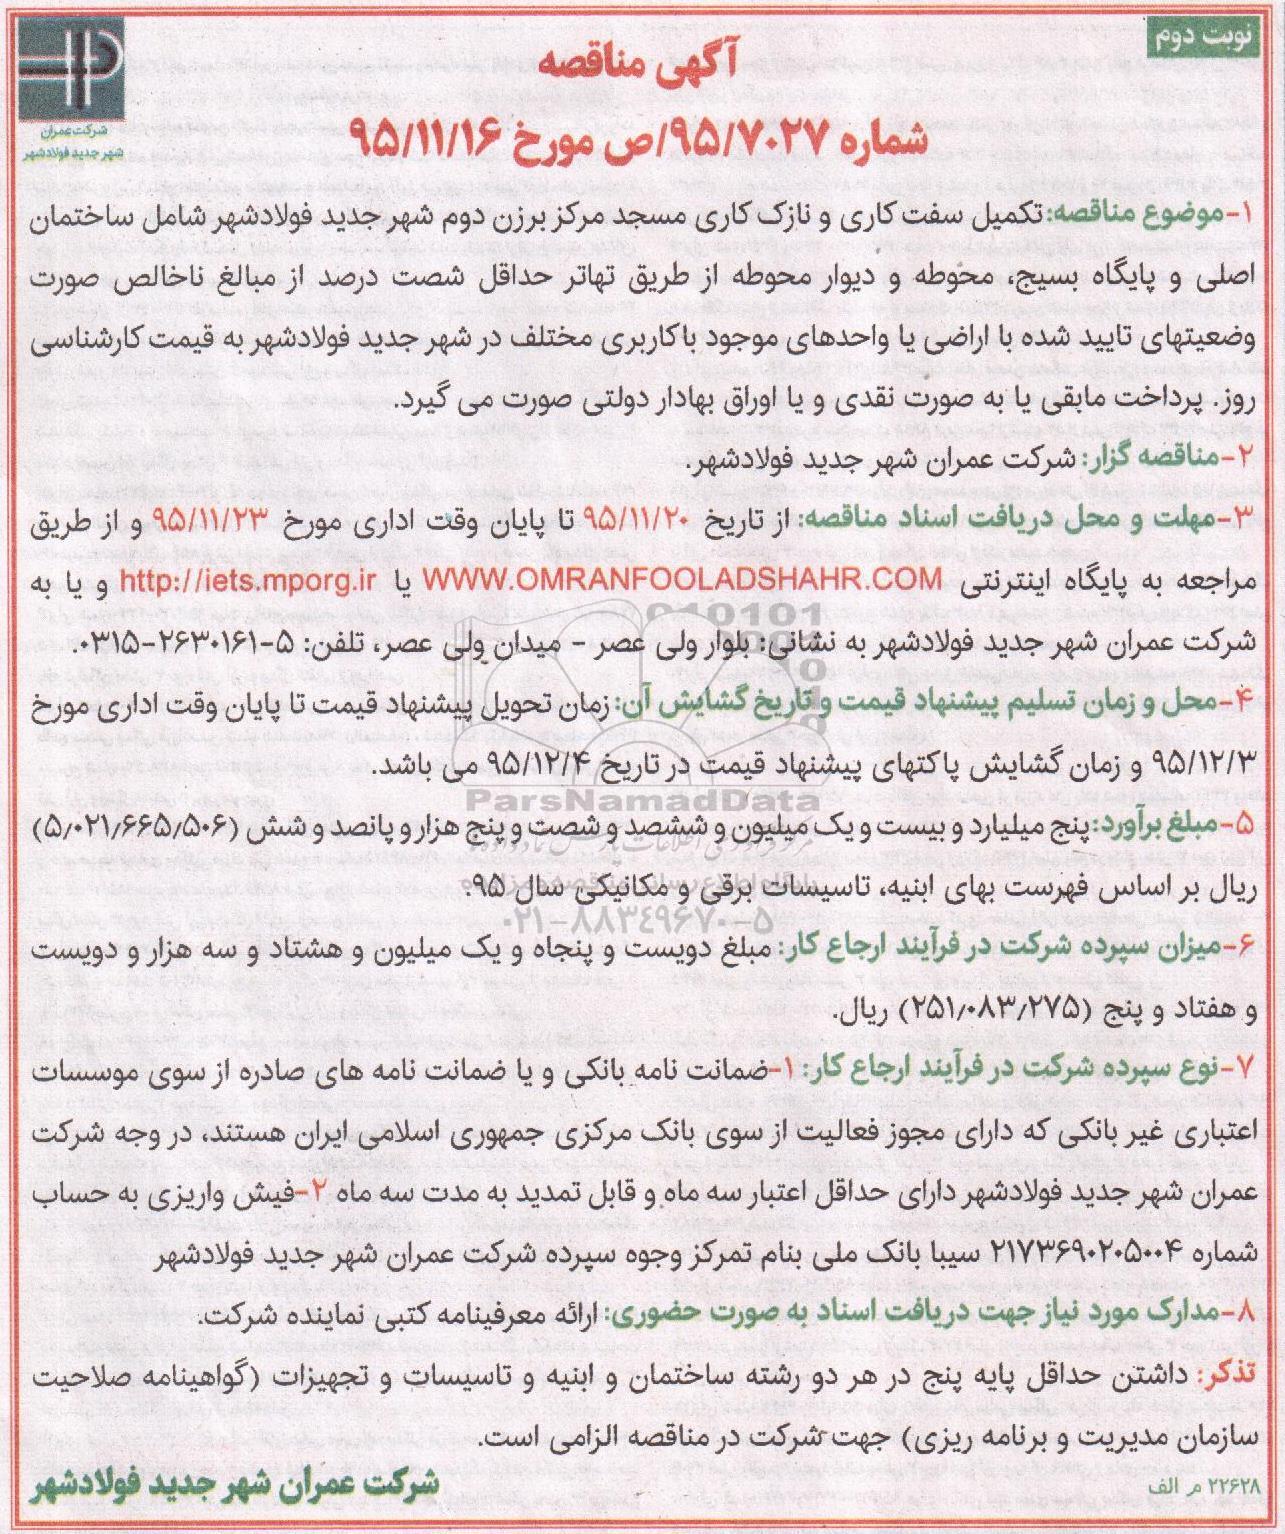 نوبت دوم
آگهی مناقصه
شماره ۹۵/۷۰۲۷/ص مورخ ۹۵/۱۱/۱۶
شرکت عمران
شهر جدید فولادشهر
۱-موضوع مناقصه: تکمیل سفت کاری و نازک کاری مسجد مرکز برزن دوم شهر جدید فولادشهر شامل ساختمان
اصلی و پایگاه بسیج، محوطه و دیوار محوطه از طریق تهاتر حداقل شصت درصد از مبالغ ناخالص صورت
وضعیتهای تایید شده با اراضی یا واحدهای موجود با کاربری مختلف در شهر جدید فولادشهر به قیمت کارشناسی
روز. پرداخت مابقی یا به صورت نقدی و یا اوراق بهادار دولتی صورت می گیرد.
۲-مناقصه گزار: شرکت عمران شهر جدید فولادشهر.
۳-مهلت و محل دریافت اسناد مناقصه: از تاریخ ۹۵/۱۱/۲۰ تا پایان وقت اداری مورخ ۹۵/۱۱/۲۳ و از طریق
مراجعه به پایگاه اینترنتی WWW.OMRANFOOLADSHAHR.COM یا http://iets.mporg.ir و یا به
شرکت عمران شهر جدید فولادشهر به نشانی: بلوار ولی عصر - میدان ولی عصر، تلفن: ۵-۲۶۳۰۱۶۱-۰۳۱۵.
۴-محل و زمان تسلیم پیشنهاد قیمت و تاریخ گشایش آن: زمان تحویل پیشنهاد قیمت تا پایان وقت اداری مورخ
۹۵/۱۲/۳ و زمان گشایش پاکتهای پیشنهاد قیمت در تاریخ ۹۵/۱۲/۴ می باشد.
ParsNamadData
۵-مبلغ برآورد: پنج میلیارد و بیست و یک میلیون و ششصد و شصت و پنج هزار و پانصد و شش (۵/۰۲۱/۶۶۵/۵۰۶)
ریال بر اساس فهرست بهای ابنیه، تاسیسات برقی و مکانیکی سال ۹۵.
۰۲۱-۸۸۳۴۹۶۷۰-۵
۶-میزان سپرده شرکت در فرآیند ارجاع کار: مبلغ دویست و پنجاه و یک میلیون و هشتاد و سه هزار و دویست
و هفتاد و پنج (۲۵۱/۰۸۳/۲۷۵) ریال.
۷-نوع سپرده شرکت در فرآیند ارجاع کار: ۱-ضمانت نامه بانکی و یا ضمانت نامه های صادره از سوی موسسات
اعتباری غیر بانکی که دارای مجوز فعالیت از سوی بانک مرکزی جمهوری اسلامی ایران هستند، در وجه شرکت
عمران شهر جدید فولادشهر دارای حداقل اعتبار سه ماه و قابل تمدید به مدت سه ماه ۲-فیش واریزی به حساب
شماره ۲۱۷۳۶۹۰۲۰۵۰۰۴ سیبا بانک ملی بنام تمرکز وجوه سپرده شرکت عمران شهر جدید فولادشهر
۸-مدارک مورد نیاز جهت دریافت اسناد به صورت حضوری: ارائه معرفینامه کتبی نماینده شرکت.
تذکر: داشتن حداقل پایه پنج در هر دو رشته ساختمان و ابنیه و تاسیسات و تجهیزات (گواهینامه صلاحیت
سازمان مدیریت و برنامه ریزی) جهت شرکت در مناقصه الزامی است.
۲۲۶۲۸ م الف
شرکت عمران شهر جدید فولادشهر